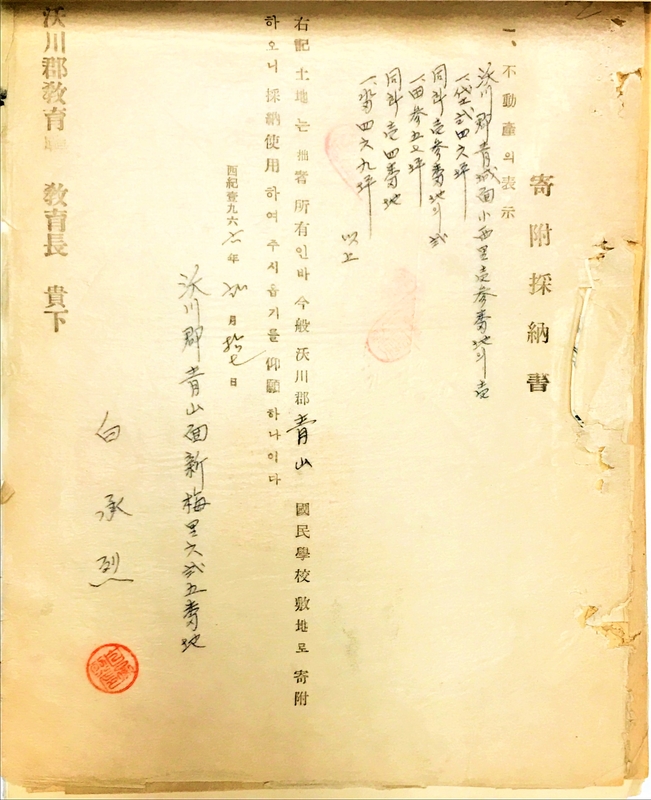 寄附採納書
一、不動産의表示
沃川郡青城面小西里壱参番地의壱
一、垈弐四六坪
同所壱参番地의弐
一、田参五七坪
同所壱四番地
一、畓四六九坪
以上
右記 土地는 拙者 所有인바 今般 沃川郡 青山 國民學校 敷地로 寄附
하오니 採納使用하여 주시옵기를 仰願하나이다
西紀壹九六 年 月 拾七日
沃川郡青山面新梅里六弐五番地
白承烈
沃川郡敎育 敎育長 貴下